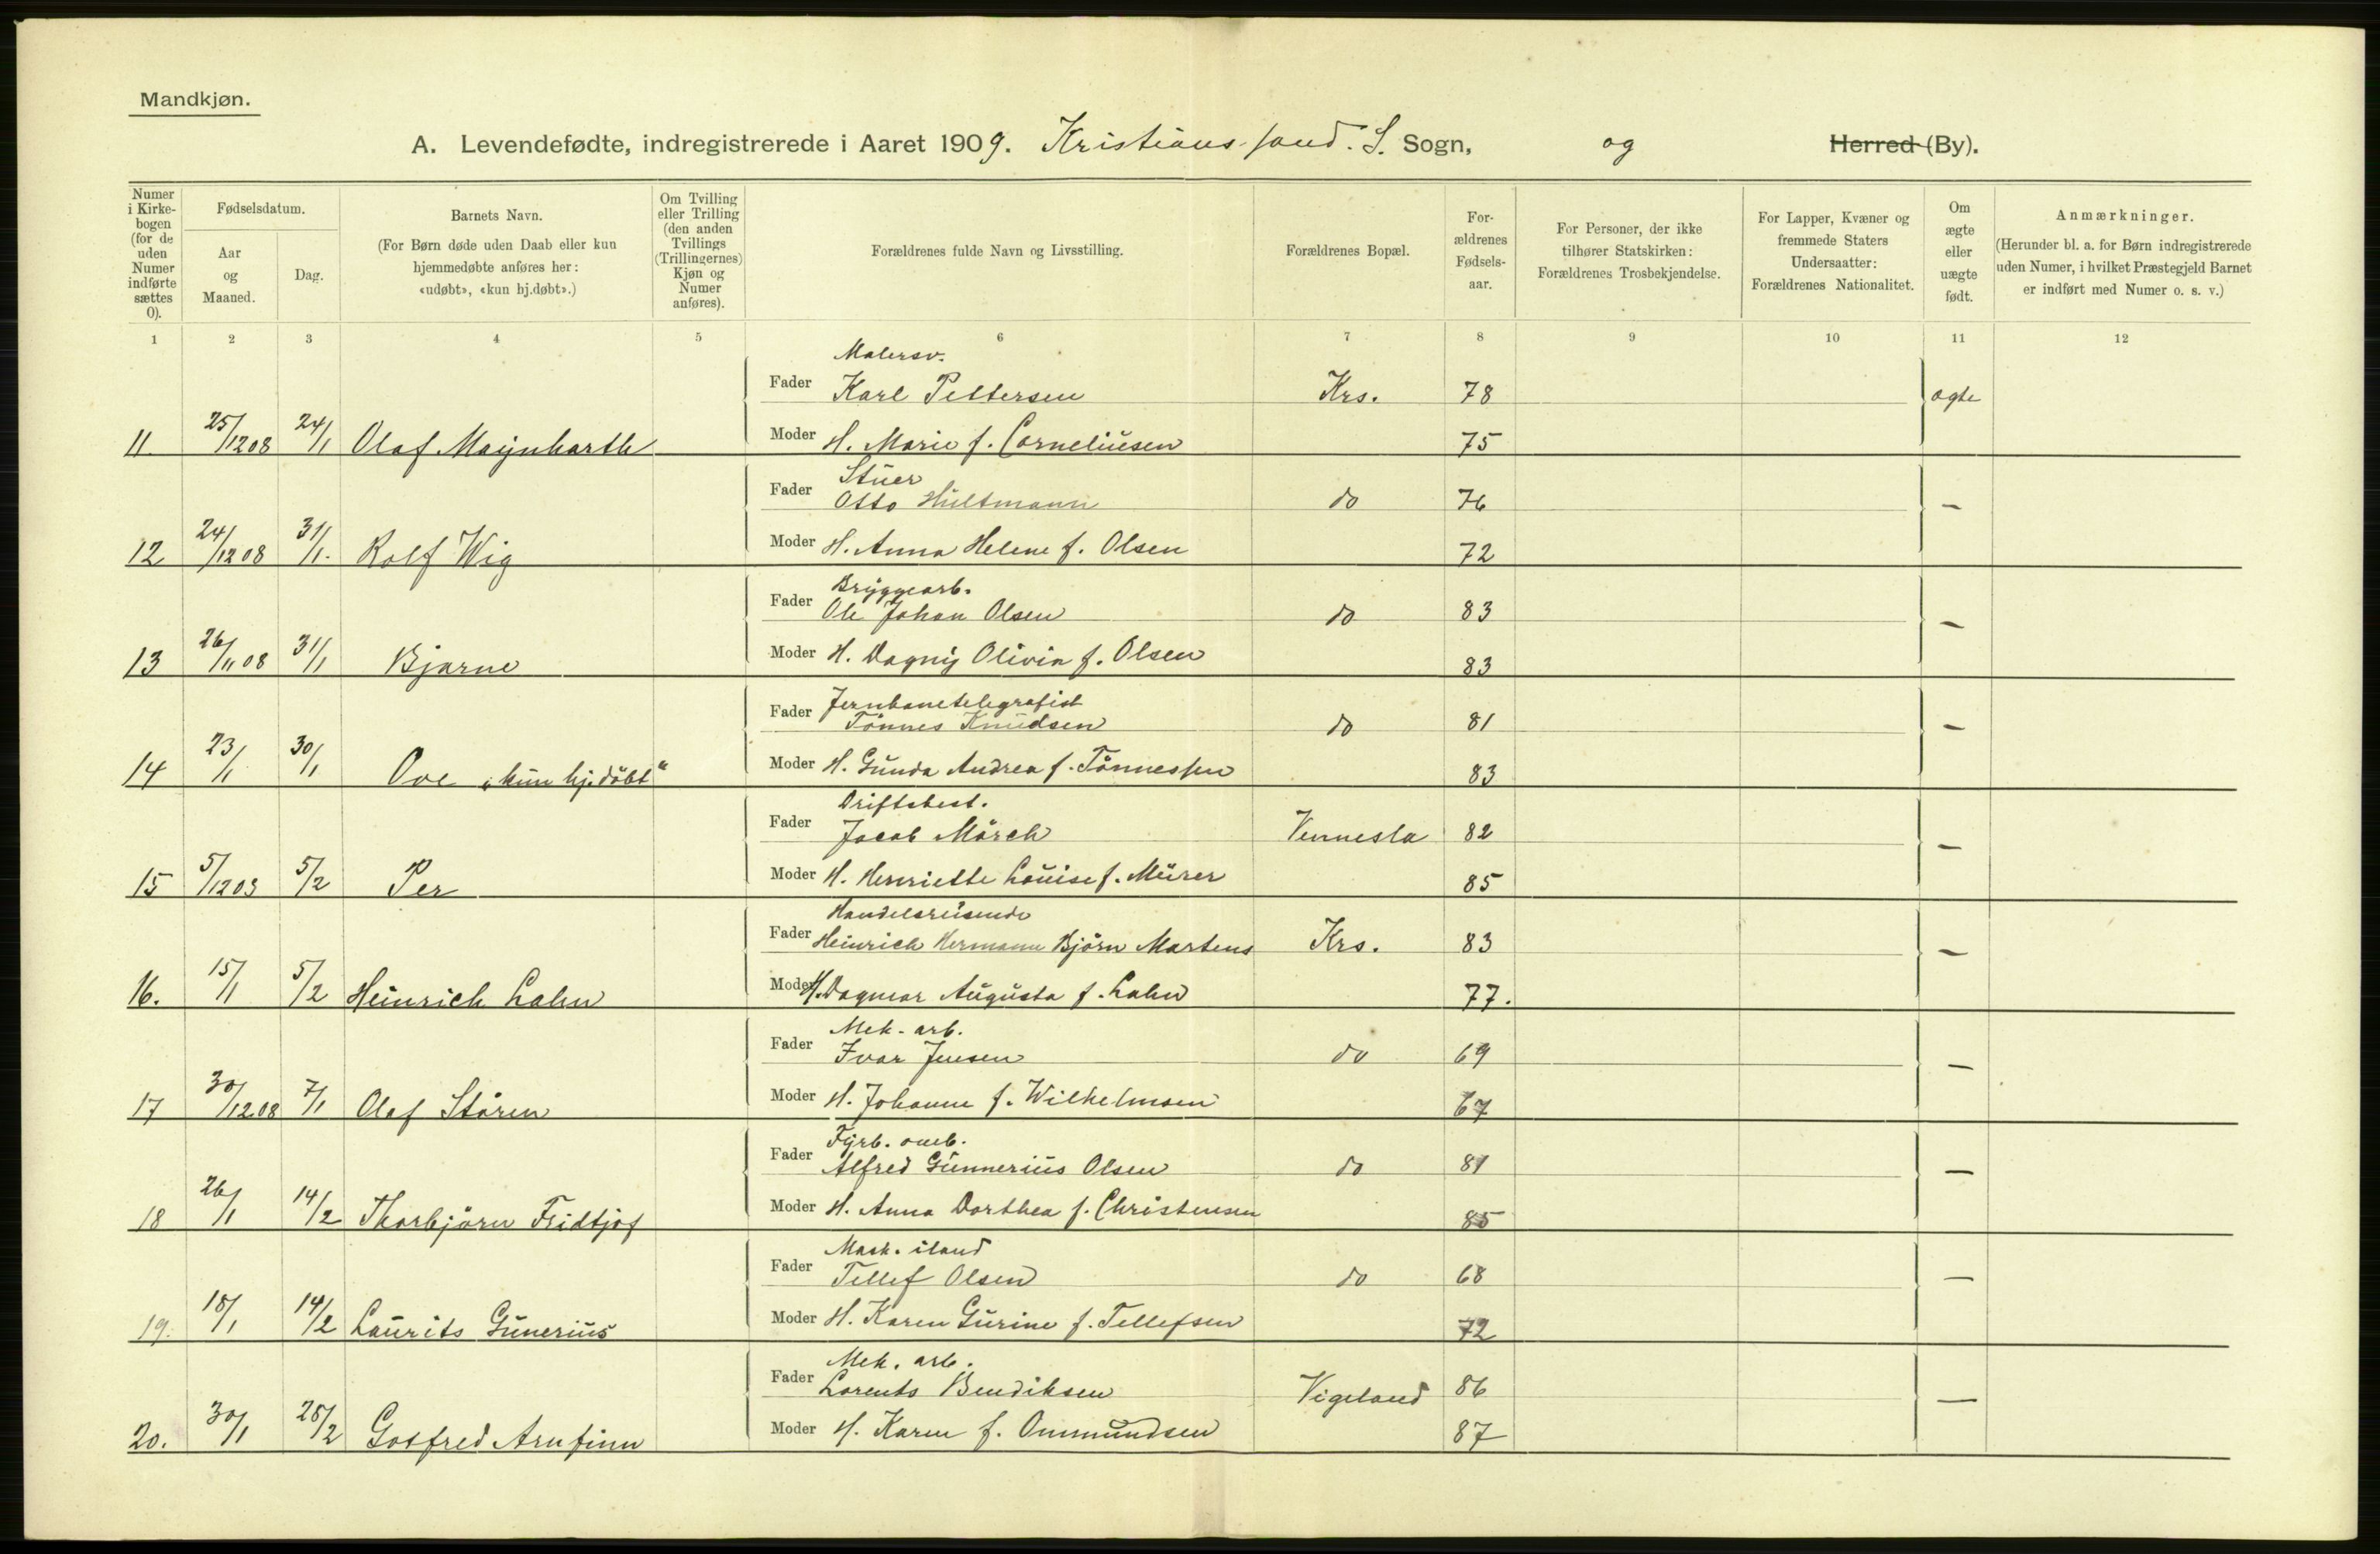 Mandkjøn.
A. Levendefødte, indregistrerede i Aaret 1909. Kristianssand. S. Sogn, og Herred (By).
Numer i Kirkebogen (for de uden Numer indførte sættes 0).
Fødselsdatum.
Aar og Maaned.
Dag.
Barnets Navn.
(For Børn døde uden Daab eller kun hjemmedøbte anføres her: «udøbt», «kun hj.døbt».)
Om Tvilling eller Trilling (den anden Tvillings (Trillingernes) Kjøn og Numer anføres).
Forældrenes fulde Navn og Livsstilling.
Forældrenes Bopæl.
Forældrenes Fødselsaar.
For Personer, der ikke tilhører Statskirken: Forældrenes Trosbekjendelse.
For Lapper, Kvæner og fremmede Staters Undersaatter: Forældrenes Nationalitet.
Om ægte eller uægte født.
Anmærkninger.
(Herunder bl. a. for Børn indregistrerede uden Numer, i hvilket Præstegjeld Barnet er indført med Numer o. s. v.)
1 2 3 4 5 6 7 8 9 10 11 12
Malersv.
Fader Karl Pettersen Krs. 78 ægte
11. 25/12 08 24/1 Olaf Maynharth Moder H. Marie f. Corneliusen 75
Stuer
Fader Otto Hultmann do 76 —
12 24/12 08 31/1. Rolf Wig Moder H. Anna Helene f. Olsen 72
Bryggearb.
Fader Ole Johan Olsen do 83 —
13 26/11 08 31/1 Bjarne Moder H. Dagny Olivia f. Olsen 83
Jernbanetelegrafist
Fader Tönnes Knudsen do 81 —
14 23/1 30/1 Ove „kun hj.döbt“ Moder H. Gunda Andrea f. Tönnessen 83
Driftsbest.
Fader Jacob Mörch Vennesla 82 —
15 5/12 03 5/2 Per Moder H. Henriette Louise f. Mürer 85
Handelsreisende
Fader Heinrich Hermann Björn Martens Krs. 83 —
16. 15/1 5/2 Heinrich Lahn Moder H. Dagmar Augusta f. Lahn 77.
Mek. arb.
Fader Ivar Jensen do 69 —
17 30/12 08 7/1 Olaf Stören Moder H. Johanne f. Wilhelmsen 67
Fyrb. omb.
Fader Alfred Gunnerius Olsen do 81 —
18 26/1 14/2 Thorbjörn Fridtjof Moder H. Anna Dorthea f. Christensen 85
Mask. iland
Fader Tellef Olsen do 68 —
19. 18/1 14/2 Laurits Gunerius Moder H. Karen Gurine f. Tellefsen 72
Mek. arb.
Fader Lorents Bendiksen Vigeland 86 —
20. 30/1 28/2 Gotfred Arnfinn Moder H. Karen f. Ommundsen 87